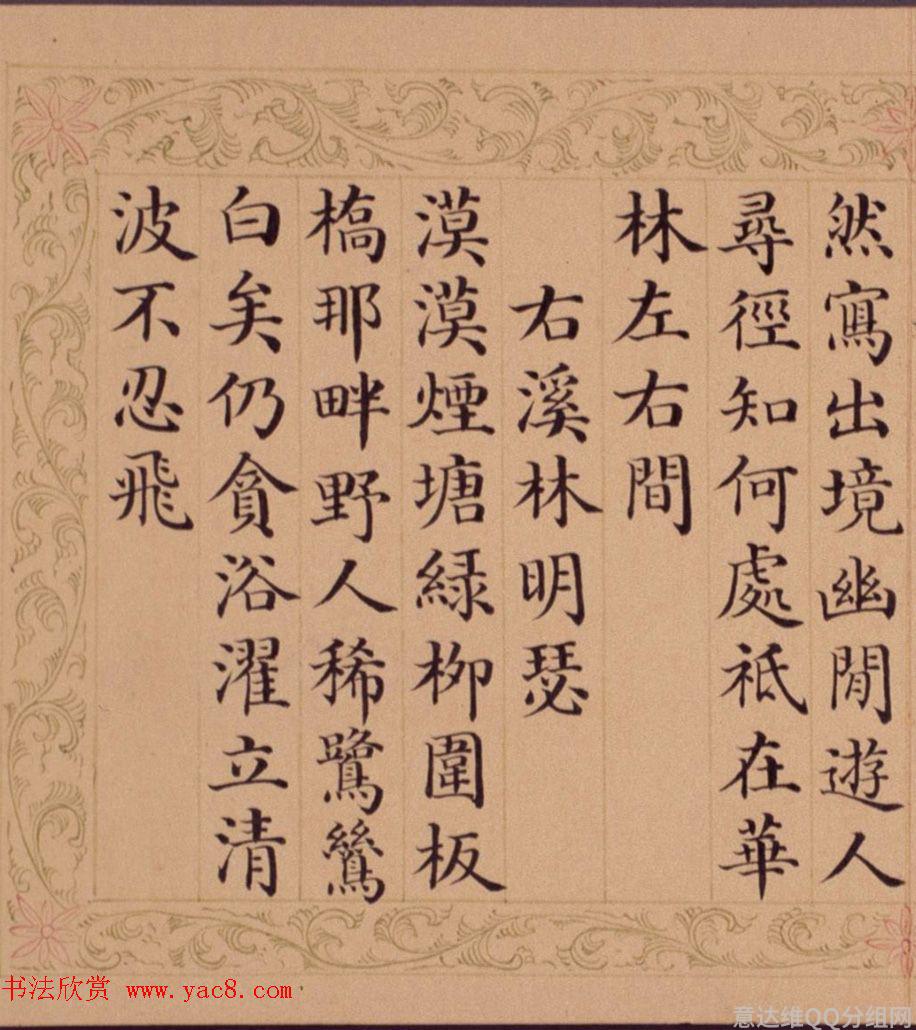 然寫出境幽閒遊人
尋徑知何處祇在華
林左右間
右溪林明瑟
漠漠煙塘綠柳圍板
橋那畔野人稀鷺鷥
白矣仍貪浴濯立清
波不忍飛
书法欣赏 www.yac8.com
意达维QQ分组网